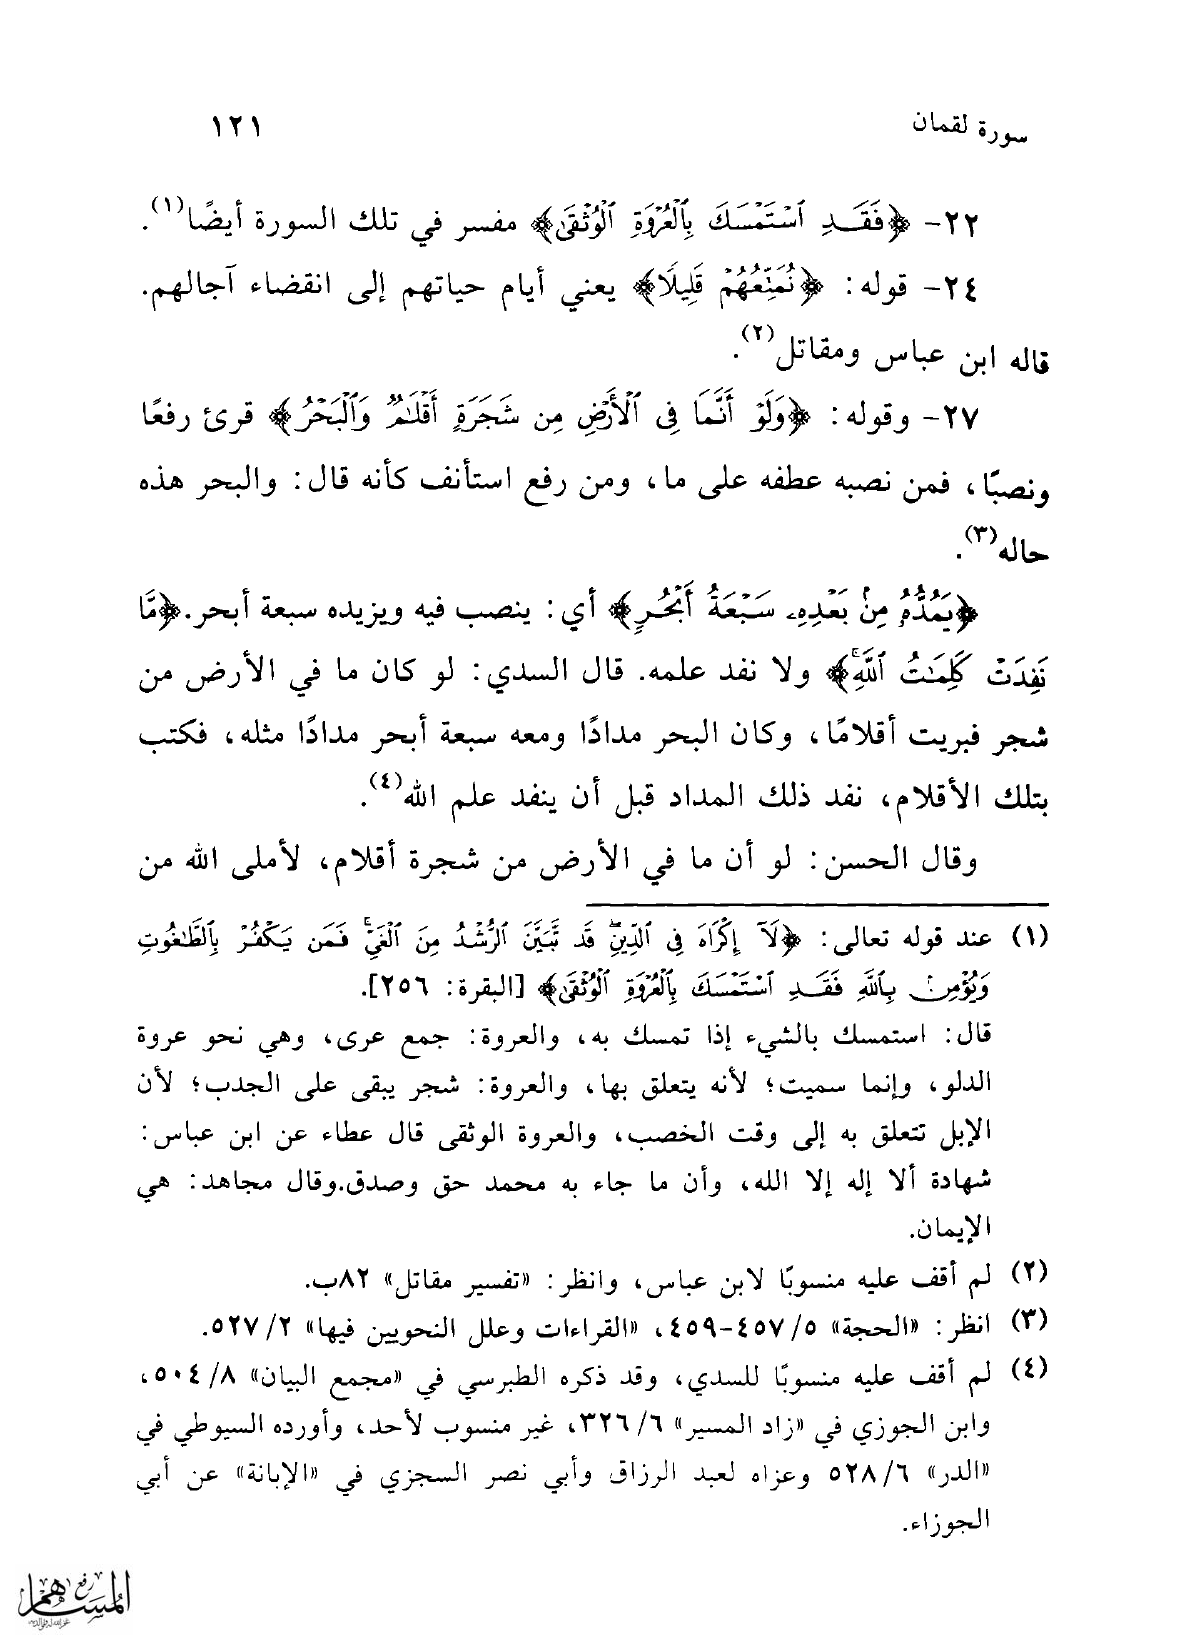 سورة لقمان ١٢١
٢٢- ﴿فَقَدِ ٱسْتَمْسَكَ بِٱلْعُرْوَةِ ٱلْوُثْقَىٰ﴾ مفسر في تلك السورة أيضًا(١).
٢٤- قوله: ﴿نُمَتِّعُهُمْ قَلِيلًا﴾ يعني أيام حياتهم إلى انقضاء آجالهم.
قاله ابن عباس ومقاتل(٢).
٢٧- وقوله: ﴿وَلَوْ أَنَّمَا فِى ٱلْأَرْضِ مِن شَجَرَةٍ أَقْلَـٰمٌ وَٱلْبَحْرُ﴾ قرئ رفعًا
ونصبًا، فمن نصبه عطفه على ما، ومن رفع استأنف كأنه قال: والبحر هذه
حاله(٣).
﴿يَمُدُّهُۥ مِنۢ بَعْدِهِۦ سَبْعَةُ أَبْحُرٍ﴾ أي: ينصب فيه ويزيده سبعة أبحر.﴿مَّا
نَفِدَتْ كَلِمَـٰتُ ٱللَّهِۗ﴾ ولا نفد علمه. قال السدي: لو كان ما في الأرض من
شجر فبريت أقلامًا، وكان البحر مدادًا ومعه سبعة أبحر مدادًا مثله، فكتب
بتلك الأقلام، نفد ذلك المداد قبل أن ينفد علم الله(٤).
وقال الحسن: لو أن ما في الأرض من شجرة أقلام، لأملى الله من
(١) عند قوله تعالى: ﴿لَآ إِكْرَاهَ فِى ٱلدِّينِۖ قَد تَّبَيَّنَ ٱلرُّشْدُ مِنَ ٱلْغَىِّۚ فَمَن يَكْفُرْ بِٱلطَّـٰغُوتِ
وَيُؤْمِنۢ بِٱللَّهِ فَقَدِ ٱسْتَمْسَكَ بِٱلْعُرْوَةِ ٱلْوُثْقَىٰ﴾ [البقرة: ٢٥٦].
قال: استمسك بالشيء إذا تمسك به، والعروة: جمع عرى، وهي نحو عروة
الدلو، وإنما سميت؛ لأنه يتعلق بها، والعروة: شجر يبقى على الجدب؛ لأن
الإبل تتعلق به إلى وقت الخصب، والعروة الوثقى قال عطاء عن ابن عباس:
شهادة ألا إله إلا الله، وأن ما جاء به محمد حق وصدق.وقال مجاهد: هي
الإيمان.
(٢) لم أقف عليه منسوبًا لابن عباس، وانظر: «تفسير مقاتل» ٨٢ب.
(٣) انظر: «الحجة» ٥/ ٤٥٧-٤٥٩، «القراءات وعلل النحويين فيها» ٢/ ٥٢٧.
(٤) لم أقف عليه منسوبًا للسدي، وقد ذكره الطبرسي في «مجمع البيان» ٨/ ٥٠٤،
وابن الجوزي في «زاد المسير» ٦/ ٣٢٦، غير منسوب لأحد، وأورده السيوطي في
«الدر» ٦/ ٥٢٨ وعزاه لعبد الرزاق وأبي نصر السجزي في «الإبانة» عن أبي
الجوزاء.